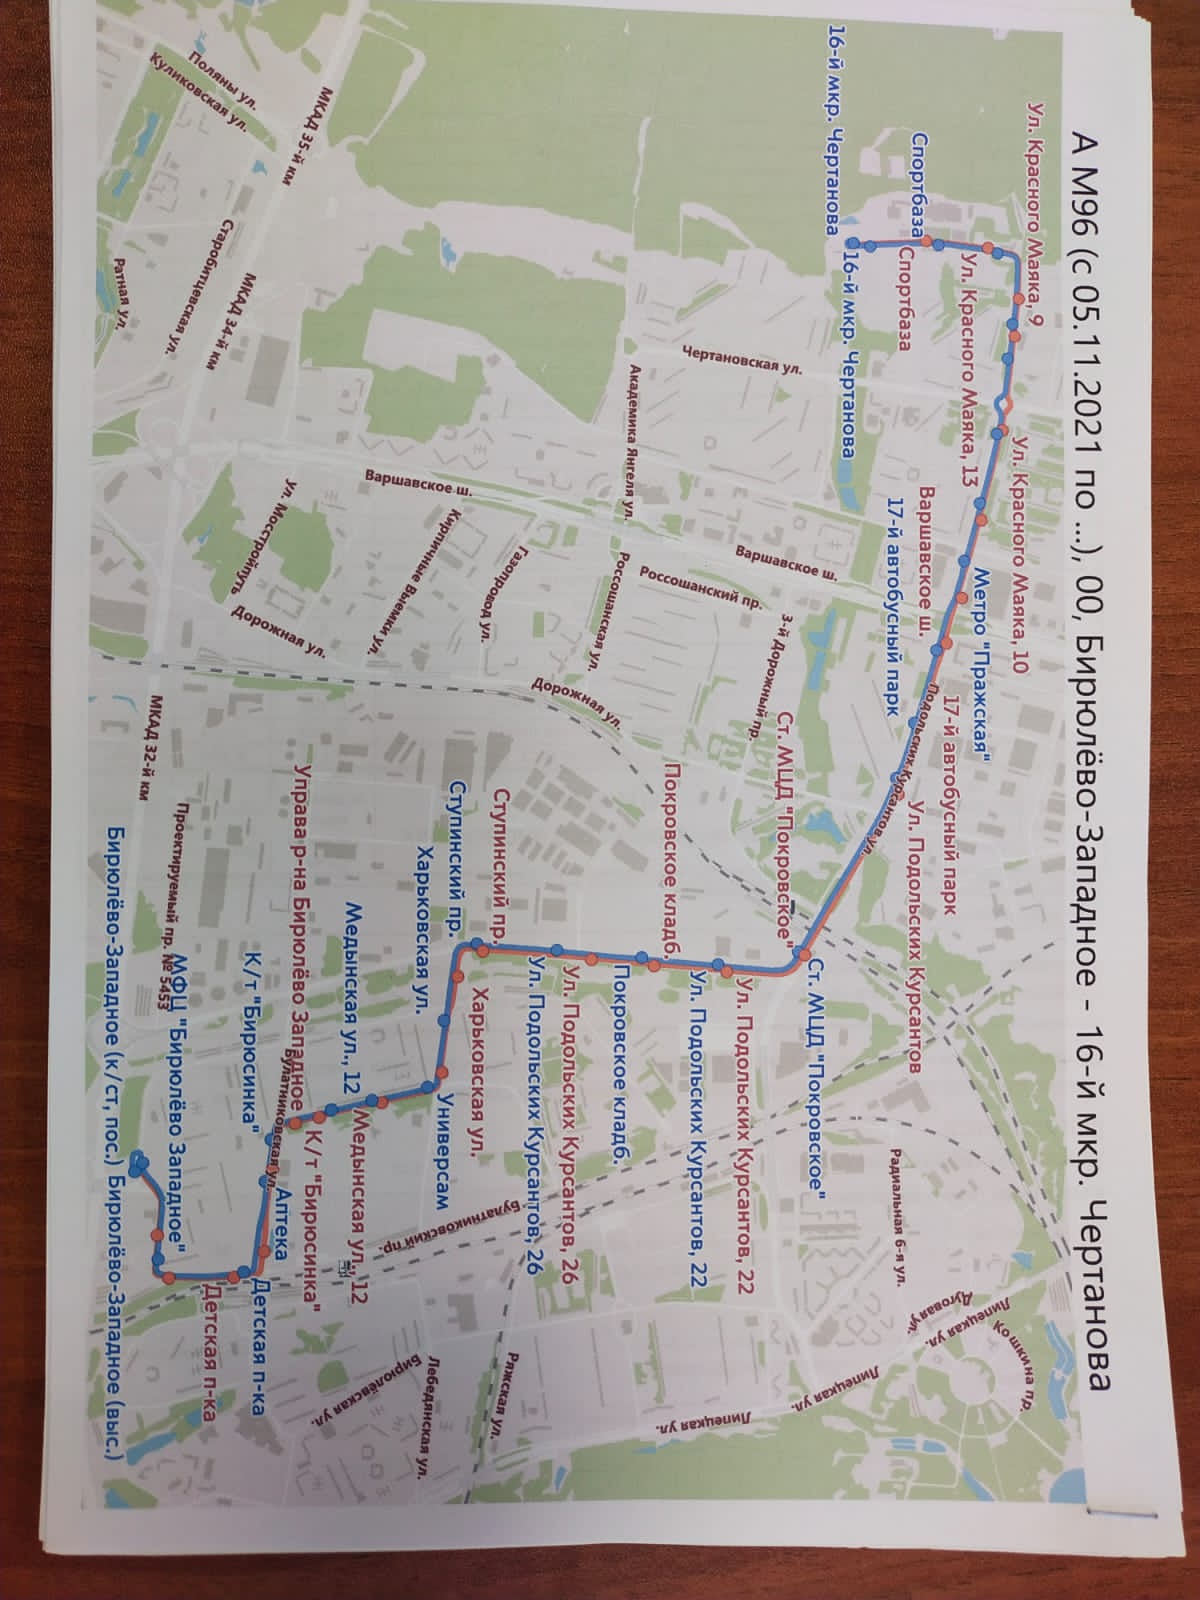 А М96 (с 05.11.2021 по ...), 00, Бирюлёво-Западное - 16-й мкр. Чертанова
Ул. Красного Маяка, 9
Ул. Красного Маяка, 10
Метро "Пражская"
17-й автобусный парк
Ул. Подольских Курсантов
Спортбаза
Ул. Красного Маяка, 13
Варшавское ш.
17-й автобусный парк
Подольских Курсантов ул.
Спортбаза
16-й мкр. Чертанова
16-й мкр. Чертанова
Чертановская ул.
Варшавское ш.
3-й Дорожный пр.
Россошанский пр.
Ст. МЦД "Покровское"
Ст. МЦД "Покровское"
Радиальная 6-я ул.
Дуговая ул.
Липецкая ул.
Кошкина пр.
Липецкая ул.
Липецкая ул.
Академика Янгеля ул.
Россошанская ул.
Дорожная ул.
Покровское кладб.
Ул. Подольских Курсантов, 22
Ул. Подольских Курсантов, 22
Покровское кладб.
Ул. Подольских Курсантов, 26
Ул. Подольских Курсантов, 26
Газопровод ул.
Варшавское ш.
Кирпичные Выемки ул.
Ступинский пр.
Харьковская ул.
Ступинский пр.
Харьковская ул.
Универсам
Булатниковский пр.
Ряжская ул.
Лебедянская ул.
Бирюлёвская ул.
Медынская ул., 12
Медынская ул., 12
МКАД 35-й км
Поляны ул.
Куликовская ул.
МКАД 34-й км
Старобитцевская ул.
Ратная ул.
ул. Мосстройпуть
Дорожная ул.
Управа р-на Бирюлёво Западное
К/т "Бирюсинка"
Булатниковская ул.
Аптека
К/т "Бирюсинка"
Детская п-ка
Детская п-ка
МКАД 32-й км
Проектируемый пр. № 5453
МФЦ "Бирюлёво Западное"
Бирюлёво-Западное (к/ст, пос.)
Бирюлёво-Западное (выс.)